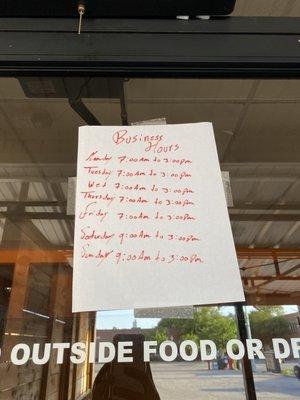 Business
Hours
Monday 7:00 Am to 3:00pm
Tuesday 7:00 Am to 3:00pm
Wed 7:00 Am to 3:00pm
Thursday 7:00 Am to 3:00pm
Friday 7:00 Am to 3:00pm
Saturday 9:00 Am to 3:00pm
Sunday 9:00 Am to 3:00pm
OUTSIDE FOOD OR DR